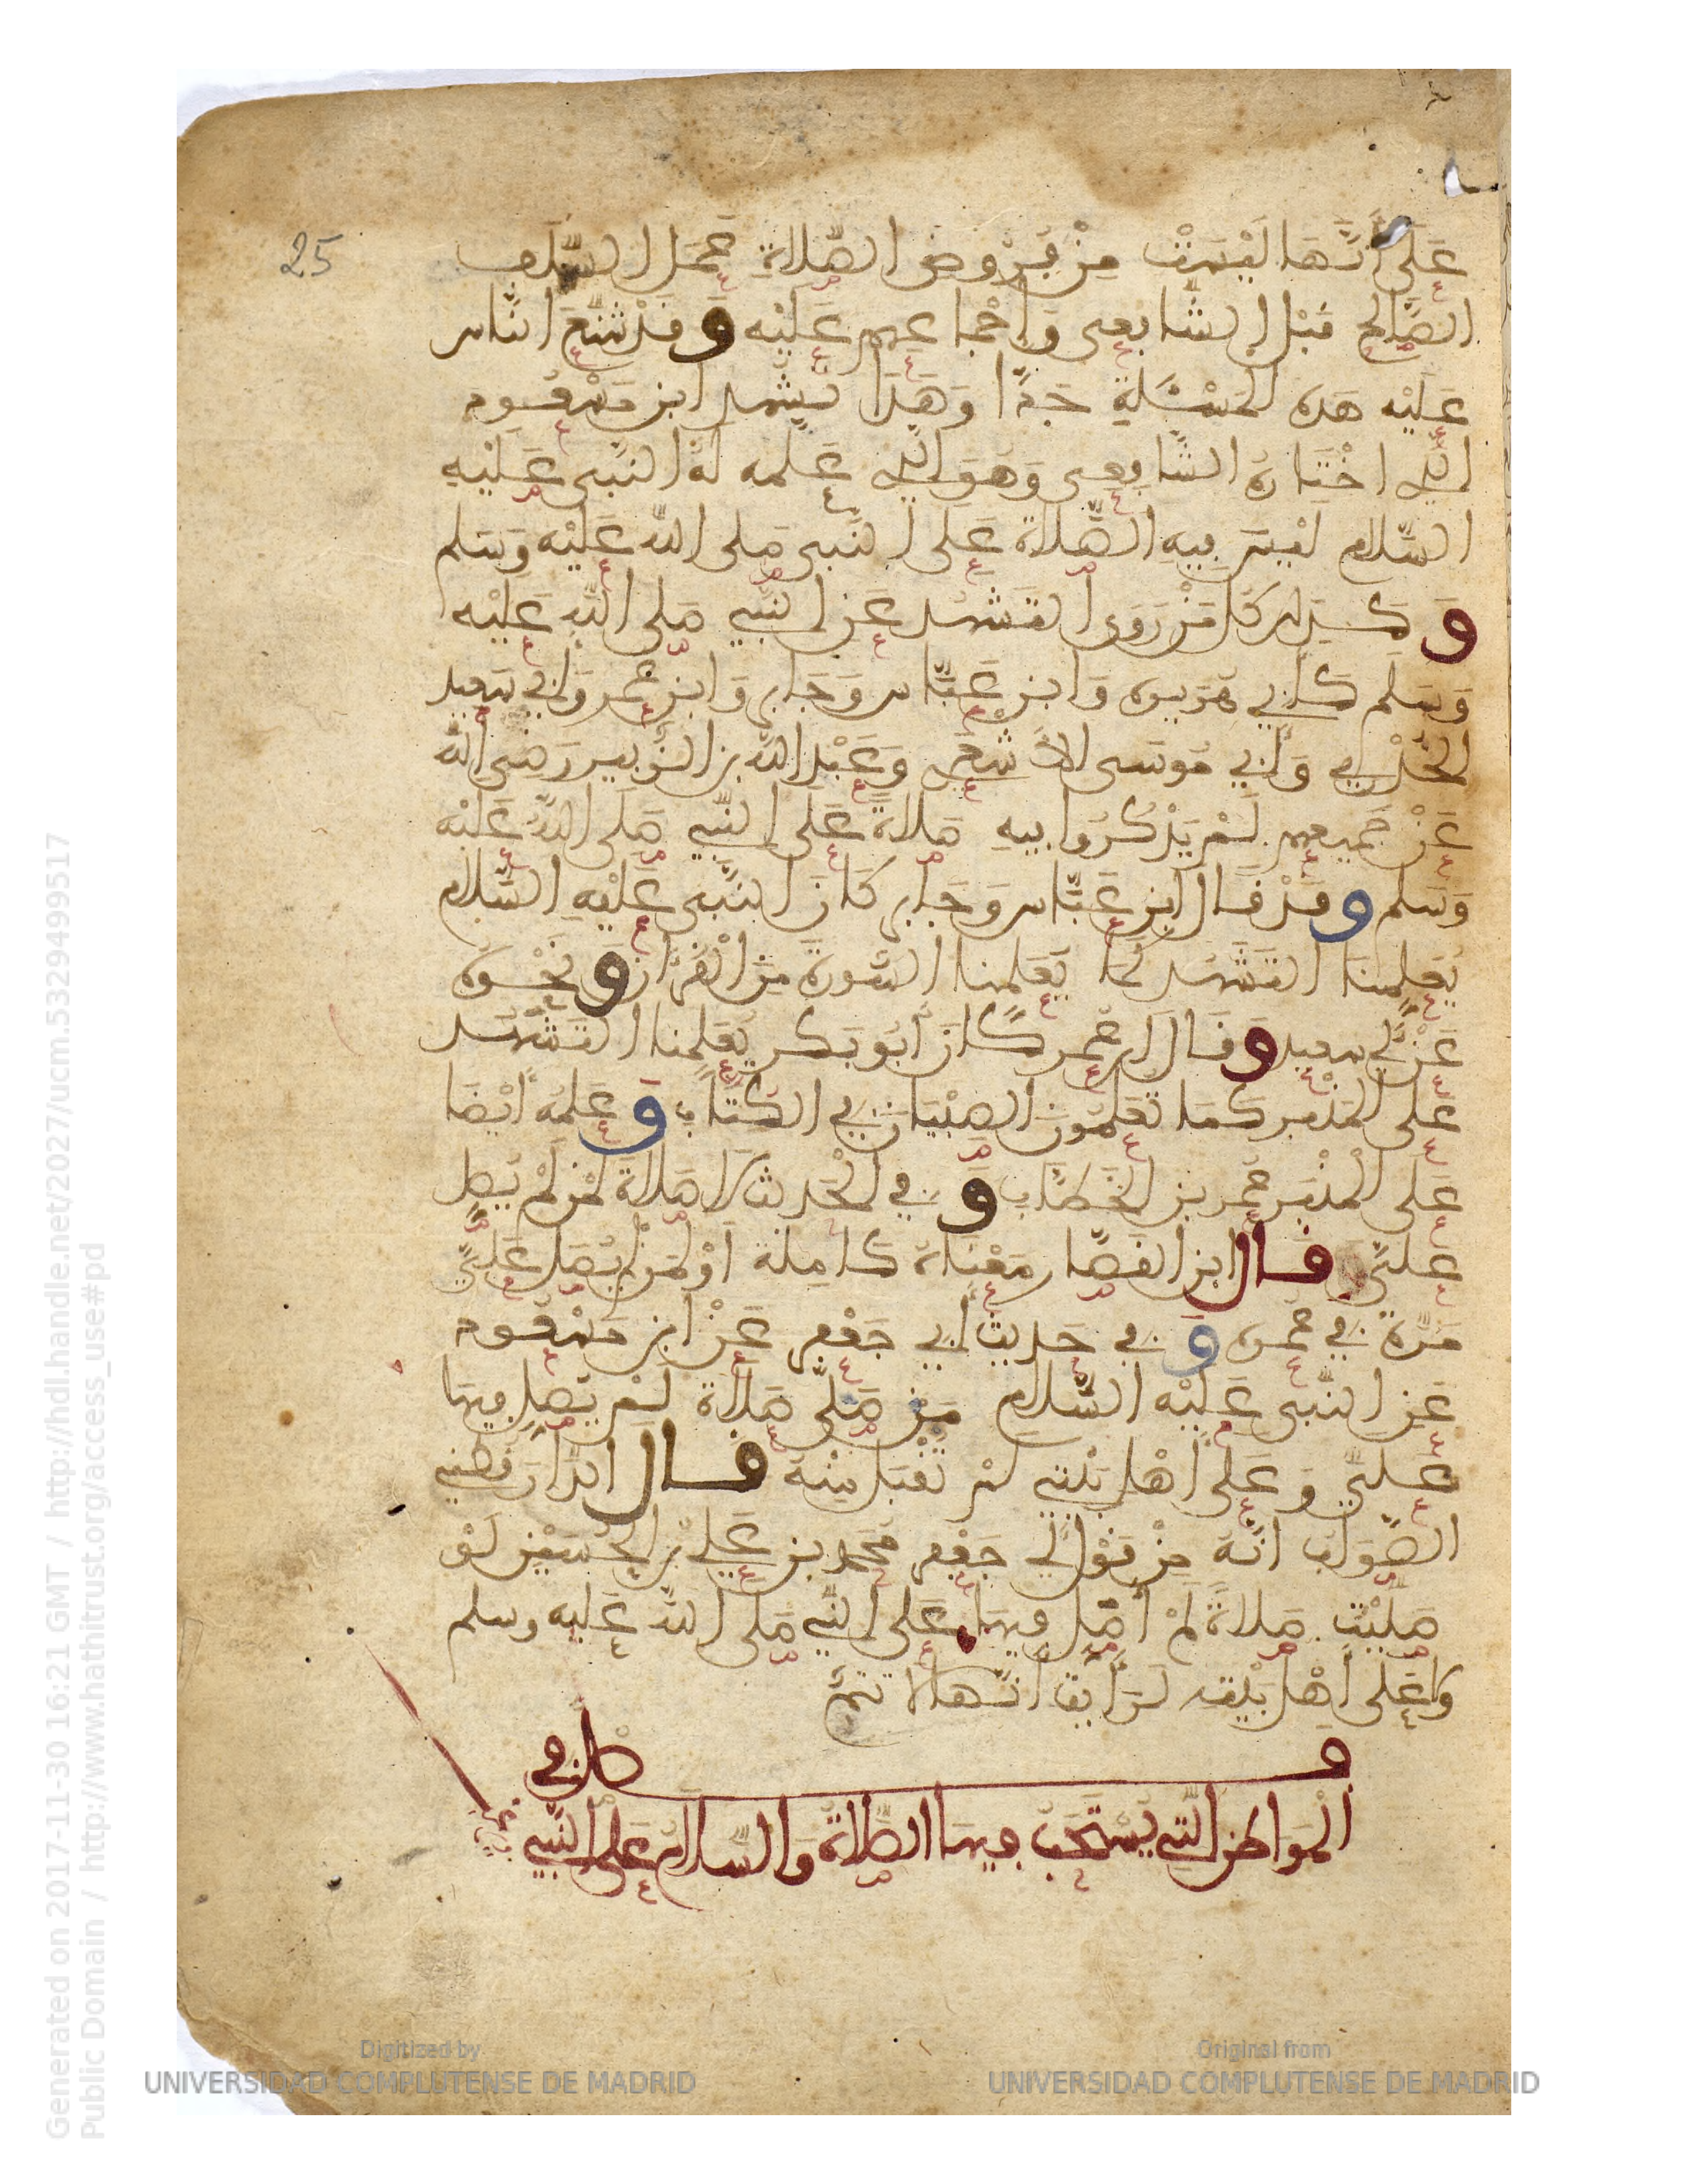 25
عَلَى أَنَّهَا لَيْسَتْ مِنْ فُرُوضِ الصَّلَاةِ عَمَلُ السَّلَفِ
الصَّالِحِ قَبْلَ الشَّافِعِي وَإِجْمَاعِهِم عَلَيْهِ وَقَدْ شَنَّعَ النَّاس
عَلَيْهِ هَذِهِ الْمَسْئَلَةِ جِدًّا وَهَذَا تَشَهُّد ابْنِ مَسْعُود
الَّذِي اخْتَارَهُ الشَّافِعِي وَهُوَ الَّذِي عَلَّمَهُ لَهُ النَّبِي عَلَيْهِ
السَّلَام لَيْسَ فِيهِ الصَّلَاة عَلَى النَّبِي صَلى الله عَلَيْهِ وَسَلم
وَكَذَلِكَ كُلّ مَنْ رَوَى التَّشَهُّد عَنِ النَّبِيِّ صَلى اللَّهِ عَلَيْهِ
وَسَلَّم كَأَبِي هُرَيْرَة وَابْنِ عَبَّاس وَجَابِر وَابْنِ عُمَر وَأَبِي سَعِيد
الْخُدْرِي وَأَبِي مُوسَى الْأَشْعَرِي وَعَبْدِ اللَّهِ بْنِ الزُّبَيْر رَضِيَ اللَّه
عَنْ جَمِيعِهِم لَمْ يَذْكُرُوا فِيهِ صَلَاةً عَلَى النَّبِيِّ صَلَّى اللَّهُ عَلَيْهِ
وَسَلم وَقَدْ قَالَ ابْنُ عَبَّاس وَجَابِر كَانَ النَّبِي عَلَيْهِ السَّلَام
يُعَلِّمُنَا التَّشَهُّد كَمَا يُعَلِّمُنَا السُّورَةَ مِنَ الْقُرْآنِ وَنَحْوَهُ
عَنْ أَبِي سَعِيد وَقَالَ ابْنُ عُمَر كَانَ أَبُو بَكر يُعَلِّمُنَا التَّشَهُّد
عَلَى الْمِنْبَر كَمَا تُعَلِّمُونَ الصِّبْيَانَ فِي الكُتَّابِ وَعَلَّمَهُ أَيْضًا
عَلَى الْمِنْبَر عُمَر بْنُ الْخَطَّابِ وَفِي الْحَدِيث لَا صَلَاةَ لِمَنْ لَمْ يُصَلِّ
عَلَيَّ قَالَ ابْنُ الْقَصَّار مَعْنَاهُ كَامِلَة أَوْ لِمَنْ لَمْ يُصَلِّ عَلَيَّ
مَرَّةً فِي عُمرِهِ وَفِي حَدِيثِ أَبِي جَعْفَر عَنْ ابْنِ مَسْعُود
عَنِ النَّبِي عَلَيْهِ السَّلَام مَنْ صَلَّى صَلَاةً لَمْ يُصَلِّ فِيهَا
عَلَيَّ وَعَلَى أَهْلِ بَيْتِي لَمْ تُقْبَل مِنْهُ قَالَ الدَّارَقُطْنِي
الصَّوَابُ أَنَّهُ مِنْ قَوْلِ أَبِي جَعْفَر مُحَمد بْنِ عَلِي بْنِ الْحُسَيْنِ لَوْ
صَلَّيْتُ صَلَاةً لَمْ أُصَلِّ فِيهَا عَلَى النَّبِيِّ صَلى الله عَليه وسلم
وَلَا عَلَى أَهْلِ بَيْتِهِ لَرَأَيْتُ أَنَّهَا لَا تَتِمُّ
فصل في
الْمَوَاطِنِ الَّتِي يُسْتَحَبُّ فِيهَا الصَّلَاةُ وَالسَّلَامُ عَلَى النَّبِيِّ
Generated on 2017-11-30 16:21 GMT / http://hdl.handle.net/2027/ucm.5329499517
Public Domain / http://www.hathitrust.org/access_use#pd
Digitized by
UNIVERSIDAD COMPLUTENSE DE MADRID
Original from
UNIVERSIDAD COMPLUTENSE DE MADRID